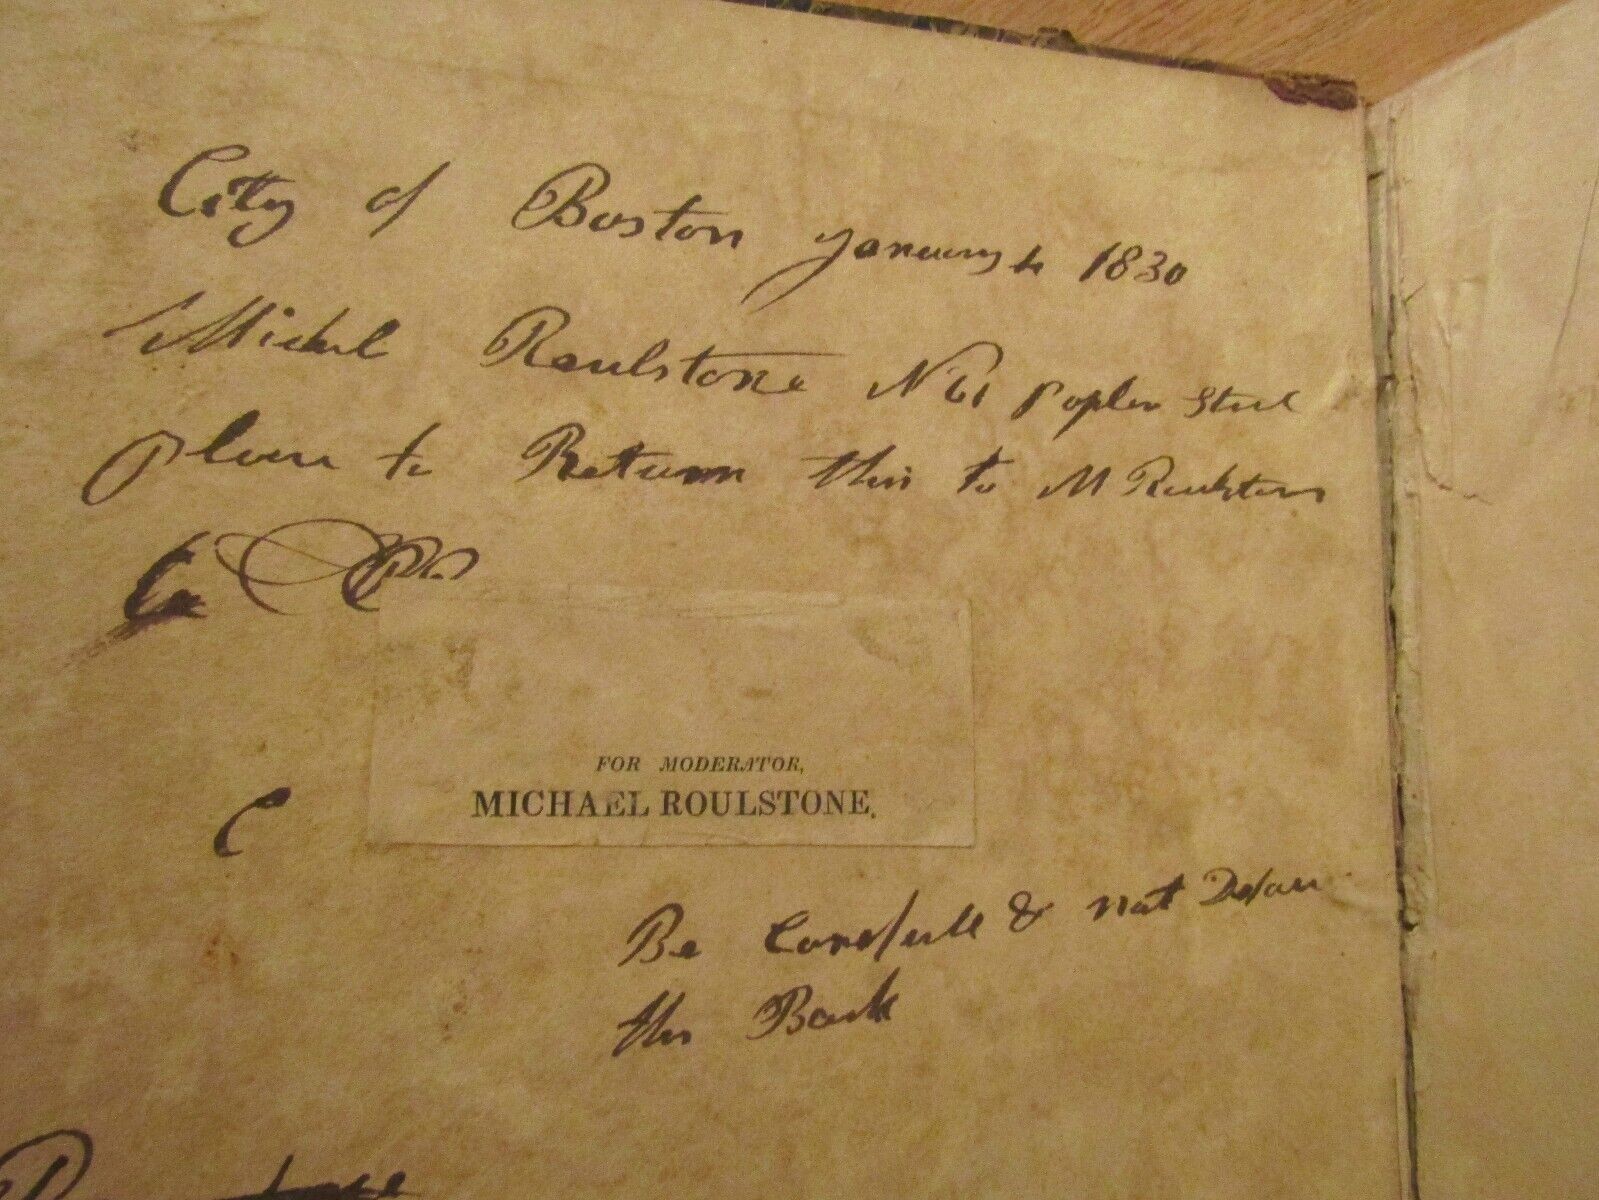 City of Boston January 1830
Michel Roulstone N 61 Poplen Street
please to Return this to M Roulstons
FOR MODERATOR,
MICHAEL ROULSTONE.
C
Be Carefull & not Defau
this Book